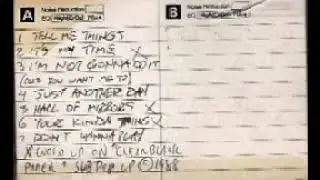 A
Noise Reduction
B
Noise Reduction
1 TELL ME THINGS
2 IT'S MY TIME X
3 I'M NOT GONNA DO IT
(DO YOU WANT ME TO)
4 JUST ANOTHER DAY
5 HALL OF MIRRORS X
6 YOUR KINDA THING X
7 DON'T WANNA PLAY
X ENDED UP ON "CLEAN BLACK
SUB POP LP © 1988